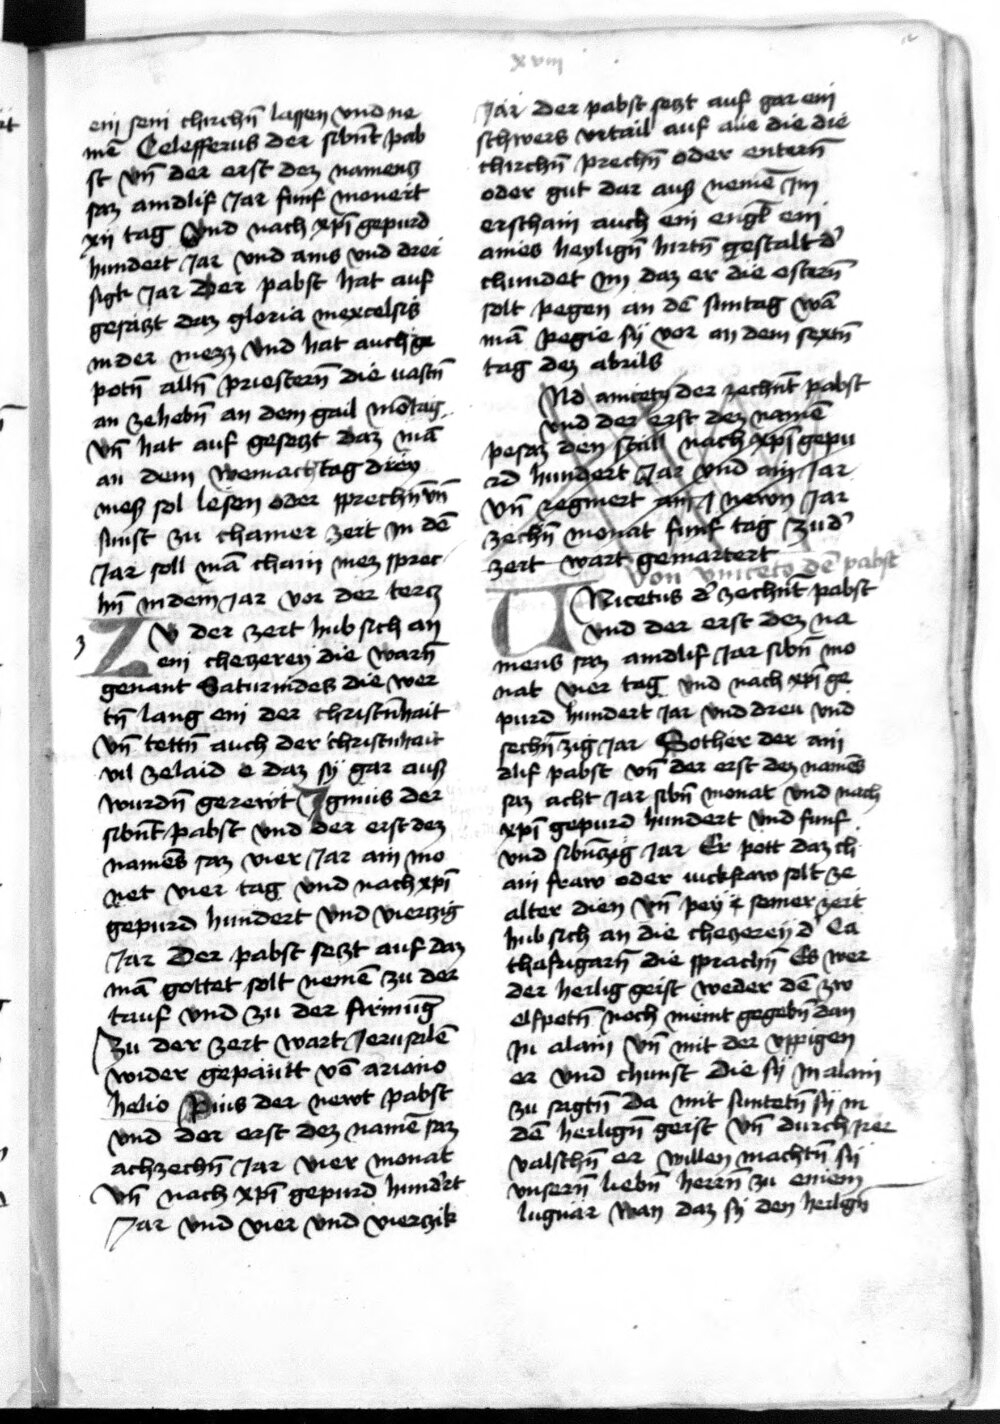 xviii
ein sein chirchñ lassen vnd ne
mẽ Celesferus der sibñt pab
st vñ der erst dez namens
saz aindlif Jar funf moneit
xii tag vnd nach xp̃i gepurd
hundert Jar vnd ains vnd drei
sigk Jar Der pabst hat auf
gesäczt daz gloria inexcelsis
in der mezz vnd hat auch ge
potñ allñ priesterñ die vastñ
an zehebñ an dem gail mõtag
vñ hat auf gesetzt daz mã
an dem weinacht tag dreÿ
meß sol lesen oder sprechñ vñ
sunst zu chainer zeit in dẽ
Jar soll mã chain mez sprec
hñ in dem Jar vor der tercz
ZV der zeit hub sich an
ein checzereÿ die warñ
genant Saturindes die wer
tñ lang ein der christñhait
vñ tettñ auch der christñhait
vil zelaid e daz sÿ gar auß
wurdñ gerewt Iginus der
sibñt pabst vnd der erst dez
namẽs saz vier Jar ain mo
net vier tag vnd nach xp̃i
gepurd hundert vnd vierczig
Jar Der pabst setzt auf daz
mã gottet solt nemẽ zu der
tauf vnd zu der firmũg
Zu der zeit wart Jerusalẽ
wider gepäwt võ ariano
helio Pius der newt pabst
vnd der erst dez namẽ saz
achzechñ Jar vier monat
vñ nach xp̃i gepurd hundert
Jar vnd vier vnd vierczik
Jar der pabst setzt auf gar ein
schwers vrtail auf alle die die
chirchñ prechñ oder enterñ
oder gut dar auß nemẽ Im
erschain auch ein engel ein
aines heyligñ hirtñ gestalt d'
chundet im daz er die osterñ
solt pegen an dẽ suntag wã
mã pegie sÿ vor an dem sextñ
tag dez abrils
Nd anicetꝫ der zechñt pabst
vnd der erst dez namẽ
pesaz den stall nach xp̃i gepu
rd hundert Jar vnd ain Jar
vñ regniert ain J newn Jar
zechñ monat funf tag zu d'
zeit wart gemartert
Von vniceto dẽ pabst
VNicetus d' zechñt pabst
vnd der erst dez na
mens saz aindlif Jar sibñ mo
nat vier tag vnd nach xp̃i ge
purd hundert Jar vnd dreu vnd
sechñzig Jar Sother der ain
dlif pabst vñ der erst dez namẽs
saz acht Jar sibñ monat vnd nach
xp̃i gepurd hundert vnd funf
vnd sibñczig Jar Er pott daz ch
ain fraw oder iuckfraw solt ze
alter dien vñ peÿ seiner zeit
hub sich an die checzereÿ d' Ca
thafrigarñ die sprachñ Es wer
der heilig geist weder dẽ zw
elfpotñ noch nieint gegebñ dan
in alain vñ mit der vppigen
er vnd chunst die sÿ in alain
zu sagtñ da mit suntetñ sÿ in
dẽ heiligñ geist vñ durch irer
valschñ er willen machtñ sÿ
vnserñ liebñ herrñ zu einem
lugnar wan daz sÿ den heiligñ